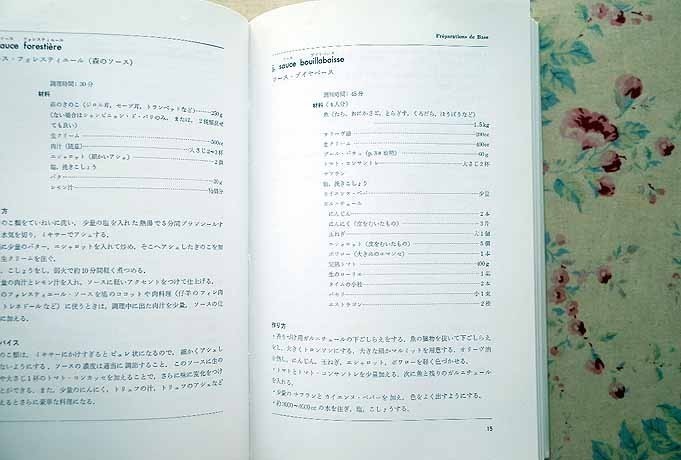 ソース フォレスティエール
auce forestière
ス・フォレスティエール（森のソース）
調理時間：30分
材料
森のきのこ（ジロル茸、セープ茸、トランペットなど）……250g
(ない場合はシャンピニョン・ド・パリのみ、または、2種類混ぜ
ても良い)
生クリーム……500cc
肉汁（随意）……大さじ2〜3杯
エシャロット（細かいアシェ）……2個
塩、挽きこしょう
バター……30g
レモン汁……½個分
方
のこ類をていねいに洗い、少量の塩を入れた熱湯で5分間ブランシールす
水気を切り、ミキサーでアシェする。
に少量のバター、エシャロットを入れて炒め、そこへアシェしたきのこを加
生クリームを注ぐ。
、こしょうをし、弱火で約10分間軽く煮つめる。
量の肉汁とレモン汁を入れ、ソースに軽いアクセントをつけて仕上げる。
のフォレスティエール・ソースを鶏のココットや肉料理（仔羊のフィレ肉
トゥルネドールなど）に使うときは、調理中に出た肉汁を少量、ソースの仕
に加える。
バイス
のこ類は、ミキサーにかけすぎるとピュレ状になるので、細かくアシェし
ないようにする。ソースの濃度は適当に調節すること。このソースに生の
や大さじ1杯のトマト・コンカッセを加えることで、さらに味に変化をつけ
とができる。また、少量のにんにく、トリュフの汁、トリュフのアシェなど
えるとさらに豪華な料理になる。
Préparations de Base
ソース ブイヤベース
sauce bouillabaisse
ソース・ブイヤベース
調理時間：45分
材料（8人分）
魚（たら、おにかさご、とらぎす、くろだら、ほうぼうなど）
……1.5kg
オリーヴ油……200cc
生クリーム……400cc
ブール・バテュ（p.38 説明）……60g
トマト・コンサントレ……大さじ2杯
サフラン
塩、挽きこしょう
カイエンヌ・ペパー……少量
ガルニチュール
にんじん……2本
にんにく（皮をむいたもの）……3片
玉ねぎ……大1個
エシャロット（皮をむいたもの）……5個
ポワロー（大きめのエマンセ）……1本
完熟トマト……400g
生のローリエ……1葉
タイムの小枝……2本
パセリ……小1束
エストラゴン……2枝
作り方
・香りづけ用ガルニチュールの下ごしらえをする。魚の臓物を抜いて下ごしらえ
をし、大きくトロンソンにする。大きな鍋かマルミットを用意する。オリーヴ油
を熱し、にんじん、玉ねぎ、エシャロット、ポワローを軽く色づかせる。
・トマトとトマト・コンサントレを少量加える。次に魚と残りのガルニチュール
を入れる。
・少量のサフランとカイエンヌ・ペパーを加え、色をよく出すようにする。
・約3000〜4000ccの水を注ぎ、塩、こしょうする。
15